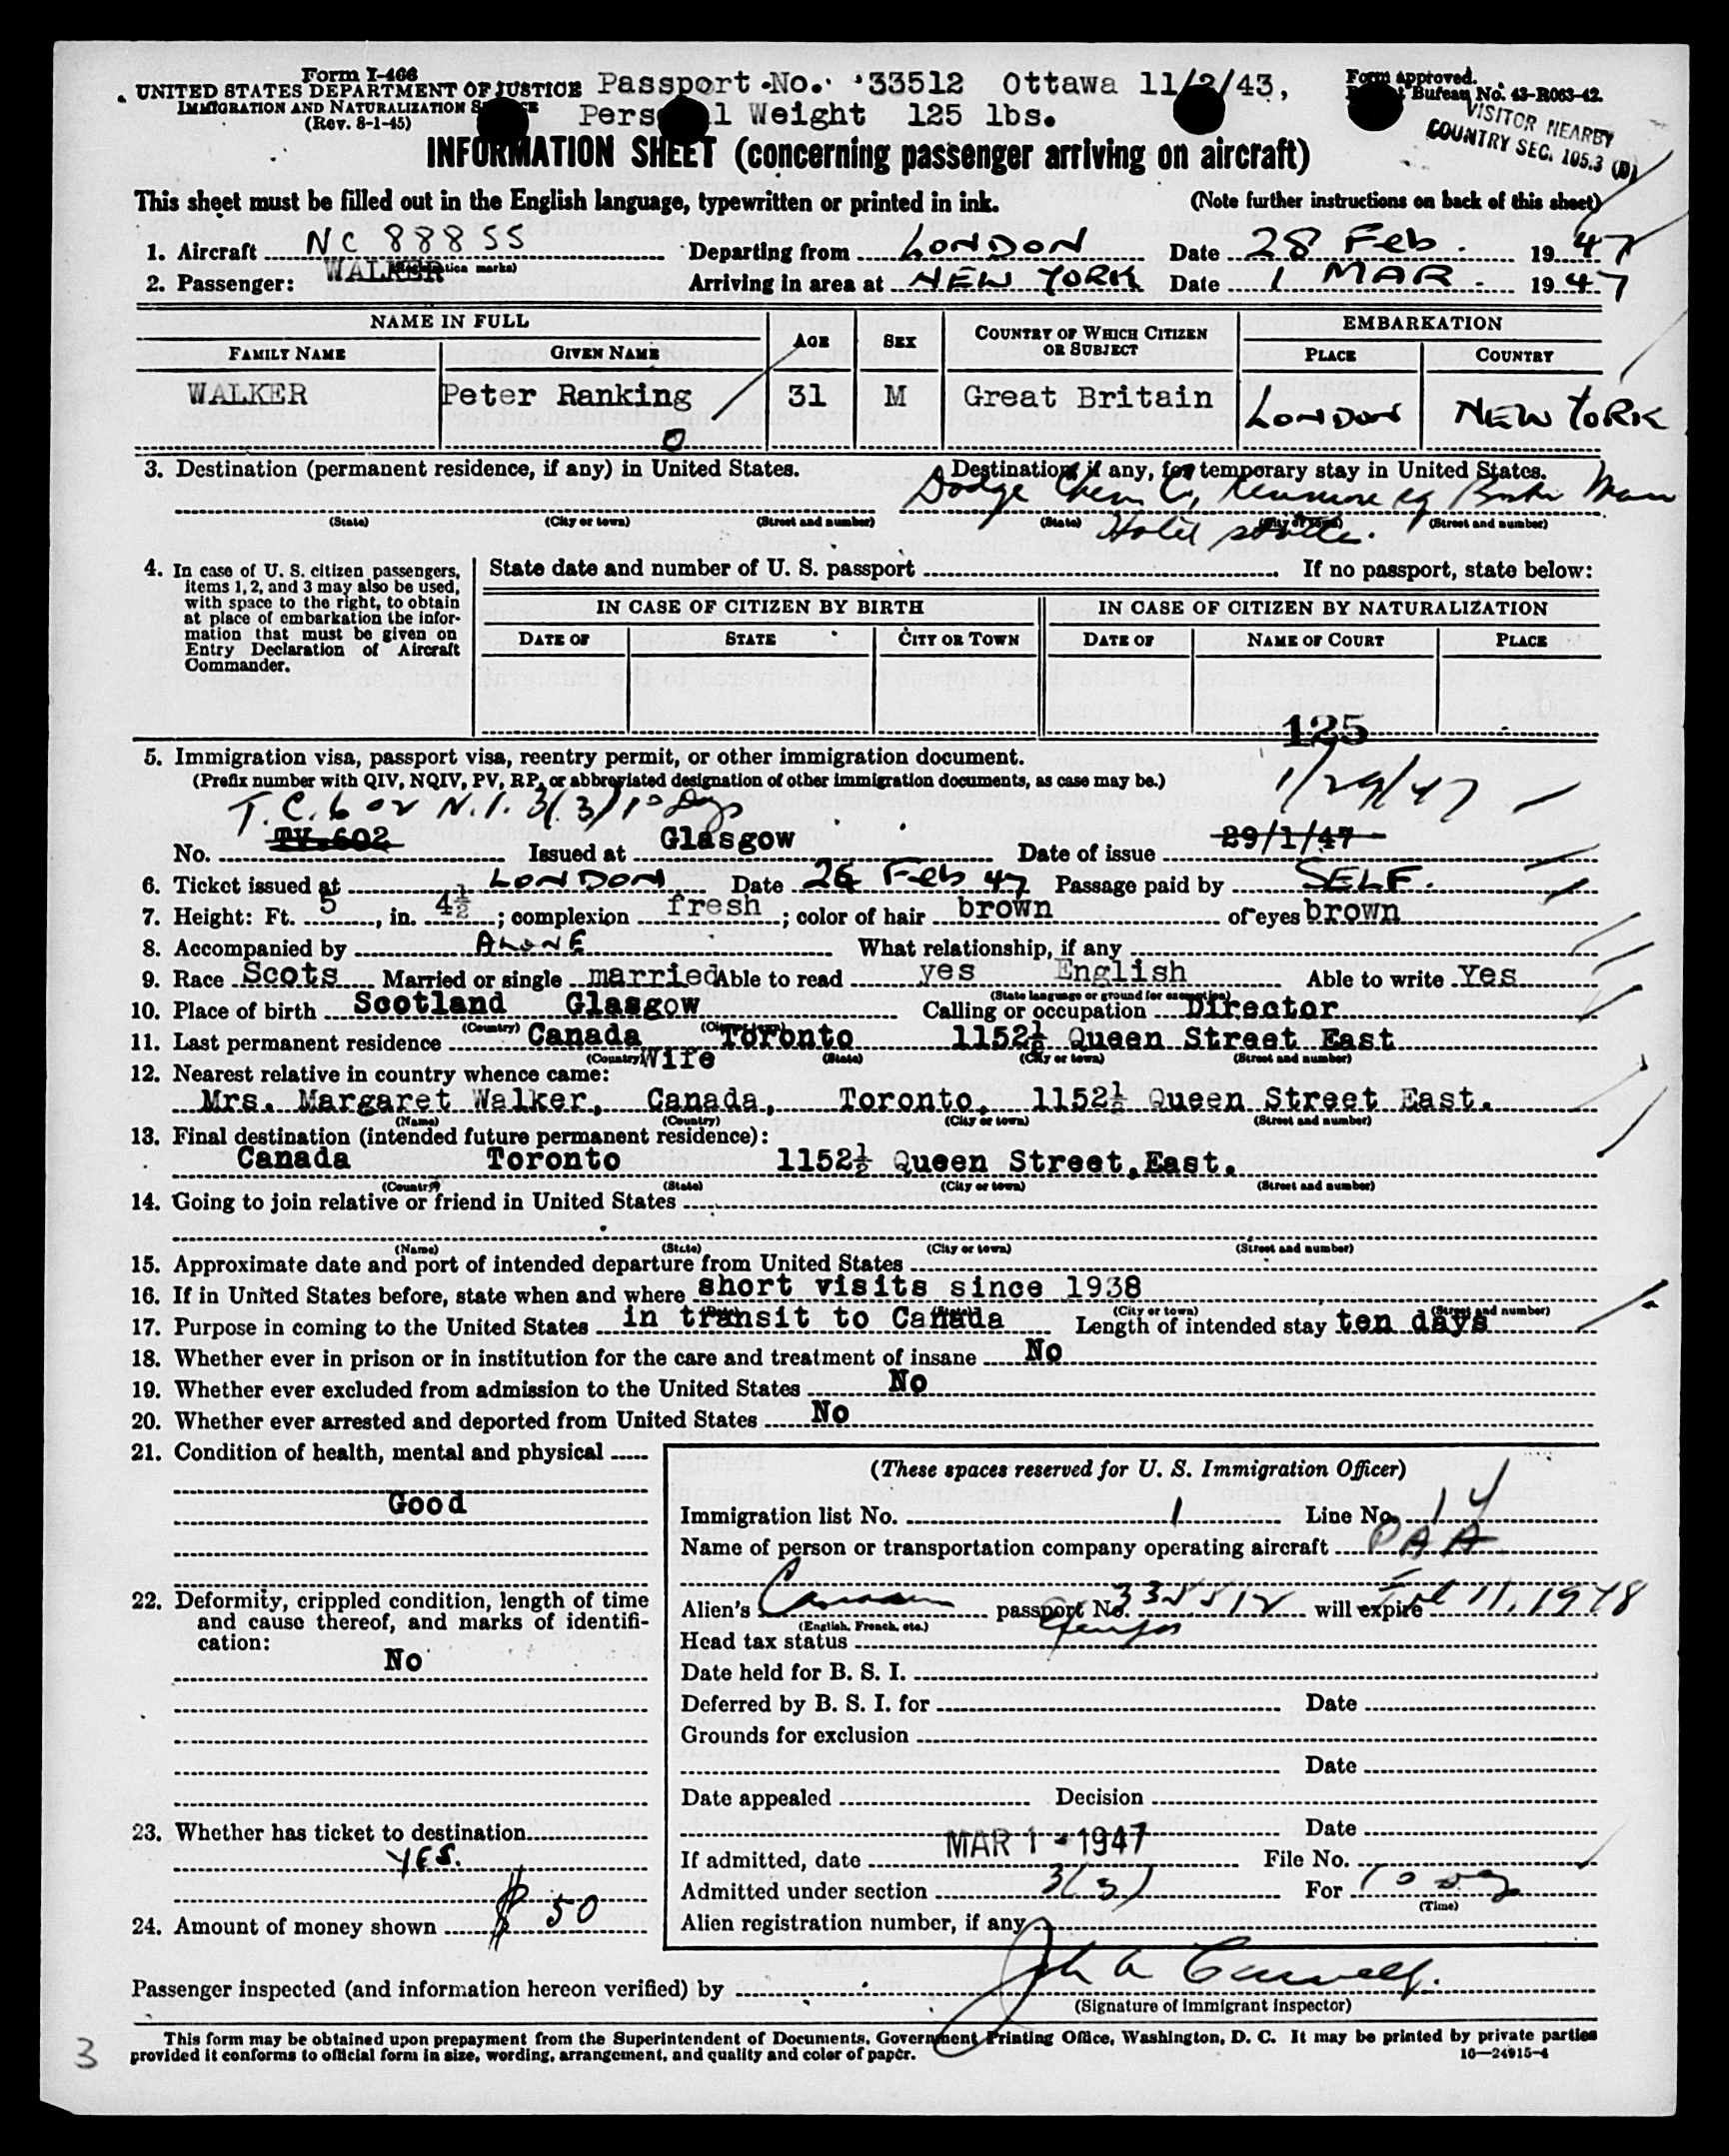 Form I-466
UNITED STATES DEPARTMENT OF JUSTICE Passport No. 33512 Ottawa 11/2/43,
IMMIGRATION AND NATURALIZATION SERVICE Personal Weight 125 lbs.
(Rev. 8-1-45)
Form approved.
Budget Bureau No. 43-R063-42.
VISITOR NEARBY
COUNTRY SEC. 105.3 (D)
INFORMATION SHEET (concerning passenger arriving on aircraft)
This sheet must be filled out in the English language, typewritten or printed in ink. (Note further instructions on back of this sheet)
1. Aircraft NC 88855 Departing from LONDON Date 28 Feb. 1947
(Registration marks)
2. Passenger: WALKER Arriving in area at NEW YORK Date 1 MAR. 1947
NAME IN FULL AGE SEX COUNTRY OF WHICH CITIZEN OR SUBJECT EMBARKATION
FAMILY NAME GIVEN NAME PLACE COUNTRY
WALKER Peter Ranking 31 M Great Britain LONDON NEW YORK
0
3. Destination (permanent residence, if any) in United States. Destination, if any, for temporary stay in United States.
Dodge Chem Co, Kenmore Sq Boston Mass
(State) (City or town) (Street and number) (State) (City or town) (Street and number)
Hotel
4. In case of U. S. citizen passengers, items 1, 2, and 3 may also be used, with space to the right, to obtain at place of embarkation the information that must be given on Entry Declaration of Aircraft Commander.
State date and number of U. S. passport If no passport, state below:
IN CASE OF CITIZEN BY BIRTH IN CASE OF CITIZEN BY NATURALIZATION
DATE OF STATE CITY OR TOWN DATE OF NAME OF COURT PLACE
125
5. Immigration visa, passport visa, reentry permit, or other immigration document.
(Prefix number with QIV, NQIV, PV, RP, or abbreviated designation of other immigration documents, as case may be.)
1/29/47
T.C. 602 N.I. 3(3) 10 Days
No. TV.602 Issued at Glasgow Date of issue 29/1/47
6. Ticket issued at LONDON Date 26 Feb 47 Passage paid by SELF.
7. Height: Ft. 5, in. 4½; complexion fresh; color of hair brown of eyes brown
8. Accompanied by ALONE What relationship, if any
9. Race Scots Married or single married Able to read yes English Able to write Yes
(State language or ground for exemption)
10. Place of birth Scotland Glasgow Calling or occupation Director
(Country) (City or town)
11. Last permanent residence Canada Toronto 1152½ Queen Street East
(Country) (State) (City or town) (Street and number)
12. Nearest relative in country whence came: Wife
Mrs. Margaret Walker, Canada, Toronto, 1152½ Queen Street East.
(Name) (Country) (City or town) (Street and number)
13. Final destination (intended future permanent residence):
Canada Toronto 1152½ Queen Street, East.
(Country) (State) (City or town) (Street and number)
14. Going to join relative or friend in United States
(Name) (State) (City or town) (Street and number)
15. Approximate date and port of intended departure from United States
16. If in United States before, state when and where short visits since 1938
(Date) (State) (City or town) (Street and number)
17. Purpose in coming to the United States in transit to Canada Length of intended stay ten days
18. Whether ever in prison or in institution for the care and treatment of insane No
19. Whether ever excluded from admission to the United States No
20. Whether ever arrested and deported from United States No
21. Condition of health, mental and physical
Good
22. Deformity, crippled condition, length of time
and cause thereof, and marks of identifi-
cation:
No
23. Whether has ticket to destination
YES.
24. Amount of money shown $ 50
(These spaces reserved for U. S. Immigration Officer)
Immigration list No. 1 Line No. 14
Name of person or transportation company operating aircraft PAA
Alien's Canadian passport No. 33512 will expire Feb 11, 1948
(English, French, etc.)
Head tax status
Date held for B. S. I.
Deferred by B. S. I. for Date
Grounds for exclusion
Date
Date appealed Decision
Date
If admitted, date MAR 1 - 1947 File No.
Admitted under section 3(3) For 10 days
(Time)
Alien registration number, if any
Passenger inspected (and information hereon verified) by
(Signature of Immigrant Inspector)
This form may be obtained upon prepayment from the Superintendent of Documents, Government Printing Office, Washington, D. C. It may be printed by private parties
provided it conforms to official form in size, wording, arrangement, and quality and color of paper. 16—24915-4
3